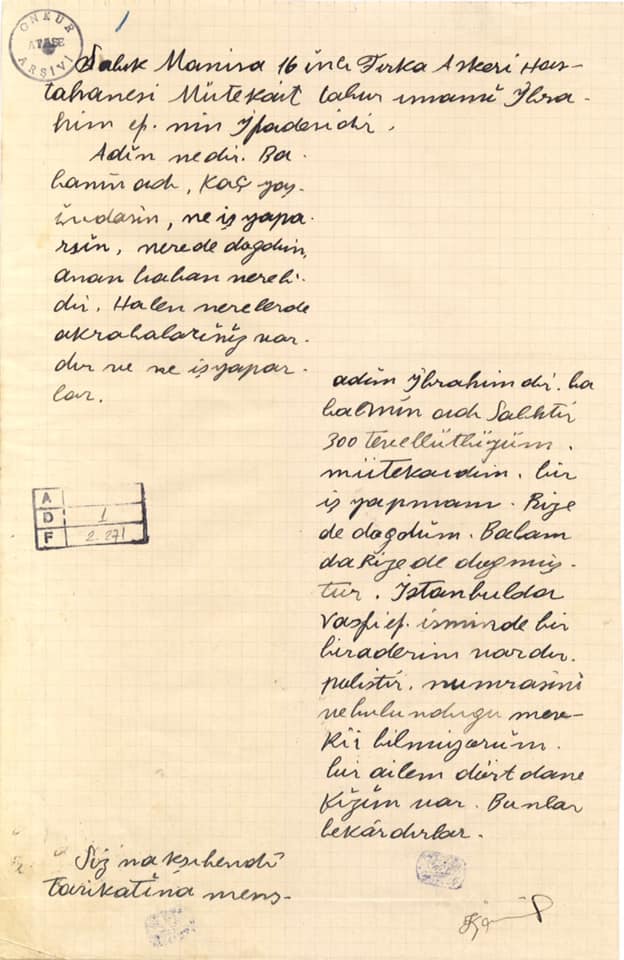 1
ONKUR
ATASE
ARŞİVİ
Sabık Manisa 16 inci Fırka Askeri Has-
tahanesi Mütekait tabur imamı İbra-
him ef. nin İfadesidir.
Adın nedir. Ba-
banın adı, Kaç yaş-
ındasın, ne iş yapa-
rsın, nerede dogdun,
anan baban nereli-
dir. Halen nerelerde
akrabalarınız var-
dır ve ne iş yapar-
lar.
adım İbrahim dir. ba
bamın adı Salihtir
300 tevellütlüyüm.
mütekaidim. bir
iş yapmam. Rize
de dogdum. Babam
da Rize de dogmuş-
tur. İstanbulda
Vasfi ef. isminde bir
biraderim vardır.
polistir. numrasını
ve bulundugu mev-
kii bilmiyorum.
bir ailem dört dane
Kızım var. Bunlar
bekârdırlar.
A
D 1
F 2-271
Siz nakşibendi
tarikatına mens-